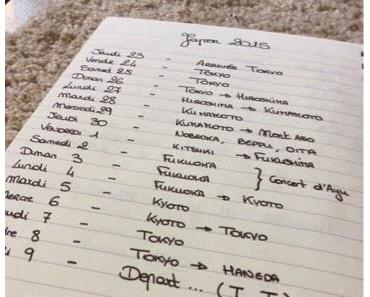 Japon 2015
Jeudi 23 - Arrivée Tokyo
Vendre 24 - Tokyo
Samedi 25 - Tokyo
Diman 26 - Tokyo → Hiroshima
Lundi 27 - Hiroshima → Kumamoto
Mardi 28 - Kumamoto
Mercredi 29 - Kumamoto → Mont Aso
Jeudi 30 - Nobeoka, Beppu, Oita
Vendredi 1 - Kitsuki →
Samedi 2 - Fukuoka
Diman 3 - Fukuoka } Concert d'Ayu
Lundi 4 - Fukuoka → Kyoto
Mardi 5 - Kyoto
ercre 6 - Kyoto → Tokyo
udi 7 - Tokyo
dre 8 - Tokyo → Haneda
di 9 - Depart ... (T_T)